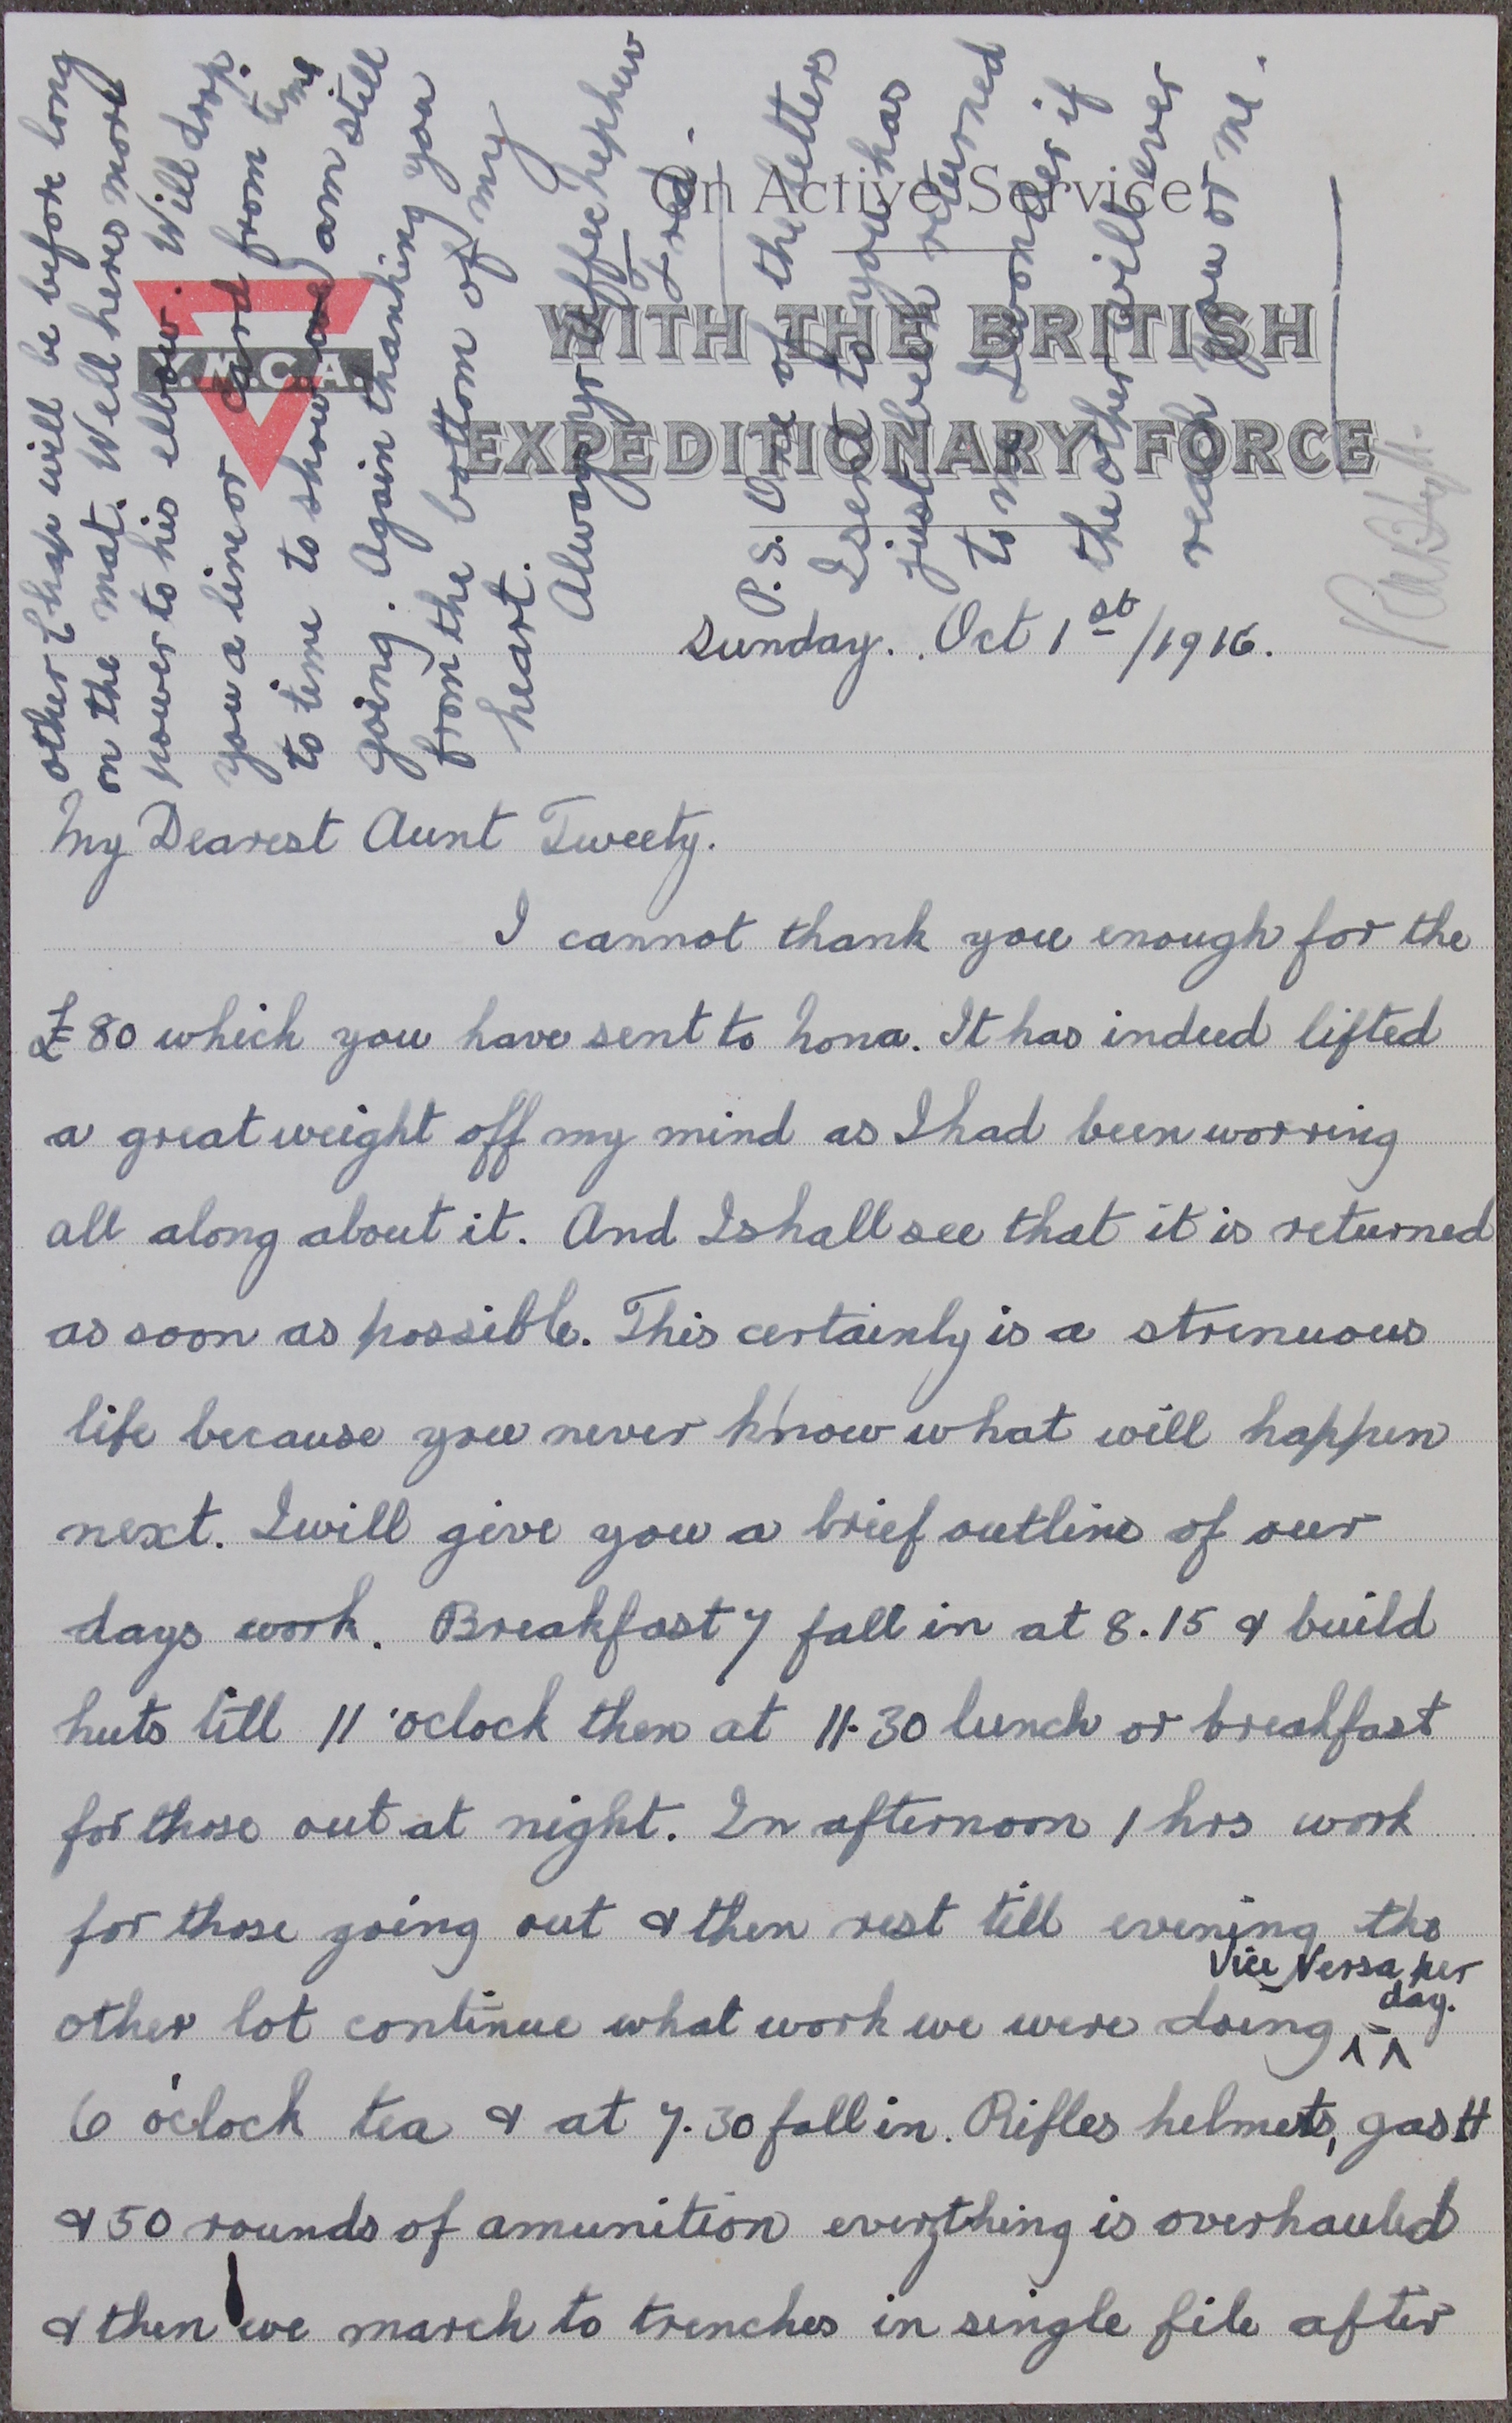 On Active Service
WITH THE BRITISH
EXPEDITIONARY FORCE
Y.M.C.A.
Sunday. Oct 1st/1916.
My Dearest Aunt Tweety.
I cannot thank you enough for the
£80 which you have sent to hona. It has indeed lifted
a great weight off my mind as I had been worring
all along about it. And I shall see that it is returned
as soon as possible. This certainly is a strenuous
life because you never know what will happen
next. I will give you a brief outline of our
days work. Breakfast 7 fall in at 8.15 & build
huts till 11 'oclock then at 11.30 lunch or breakfast
for those out at night. In afternoon 1 hrs work
for those going out & then rest till evening the
Vice Versa per
day.
other lot continue what work we were doing
6 o'clock tea & at 7.30 fall in. Rifles helmets, gas H
& 50 rounds of amunition everything is overhauled
& then we march to trenches in single file after
other chap will be before long
on the mat. Well heres more
power to his elbow. Will drop
you a line or card from time
to time to show am still
going. Again thanking you
from the bottom of my
heart.
Always yr affec nephew
Fred.
P.S. One of the letters
I sent to you has
just been returned
to me I wonder if
the other will ever
reach you or me.